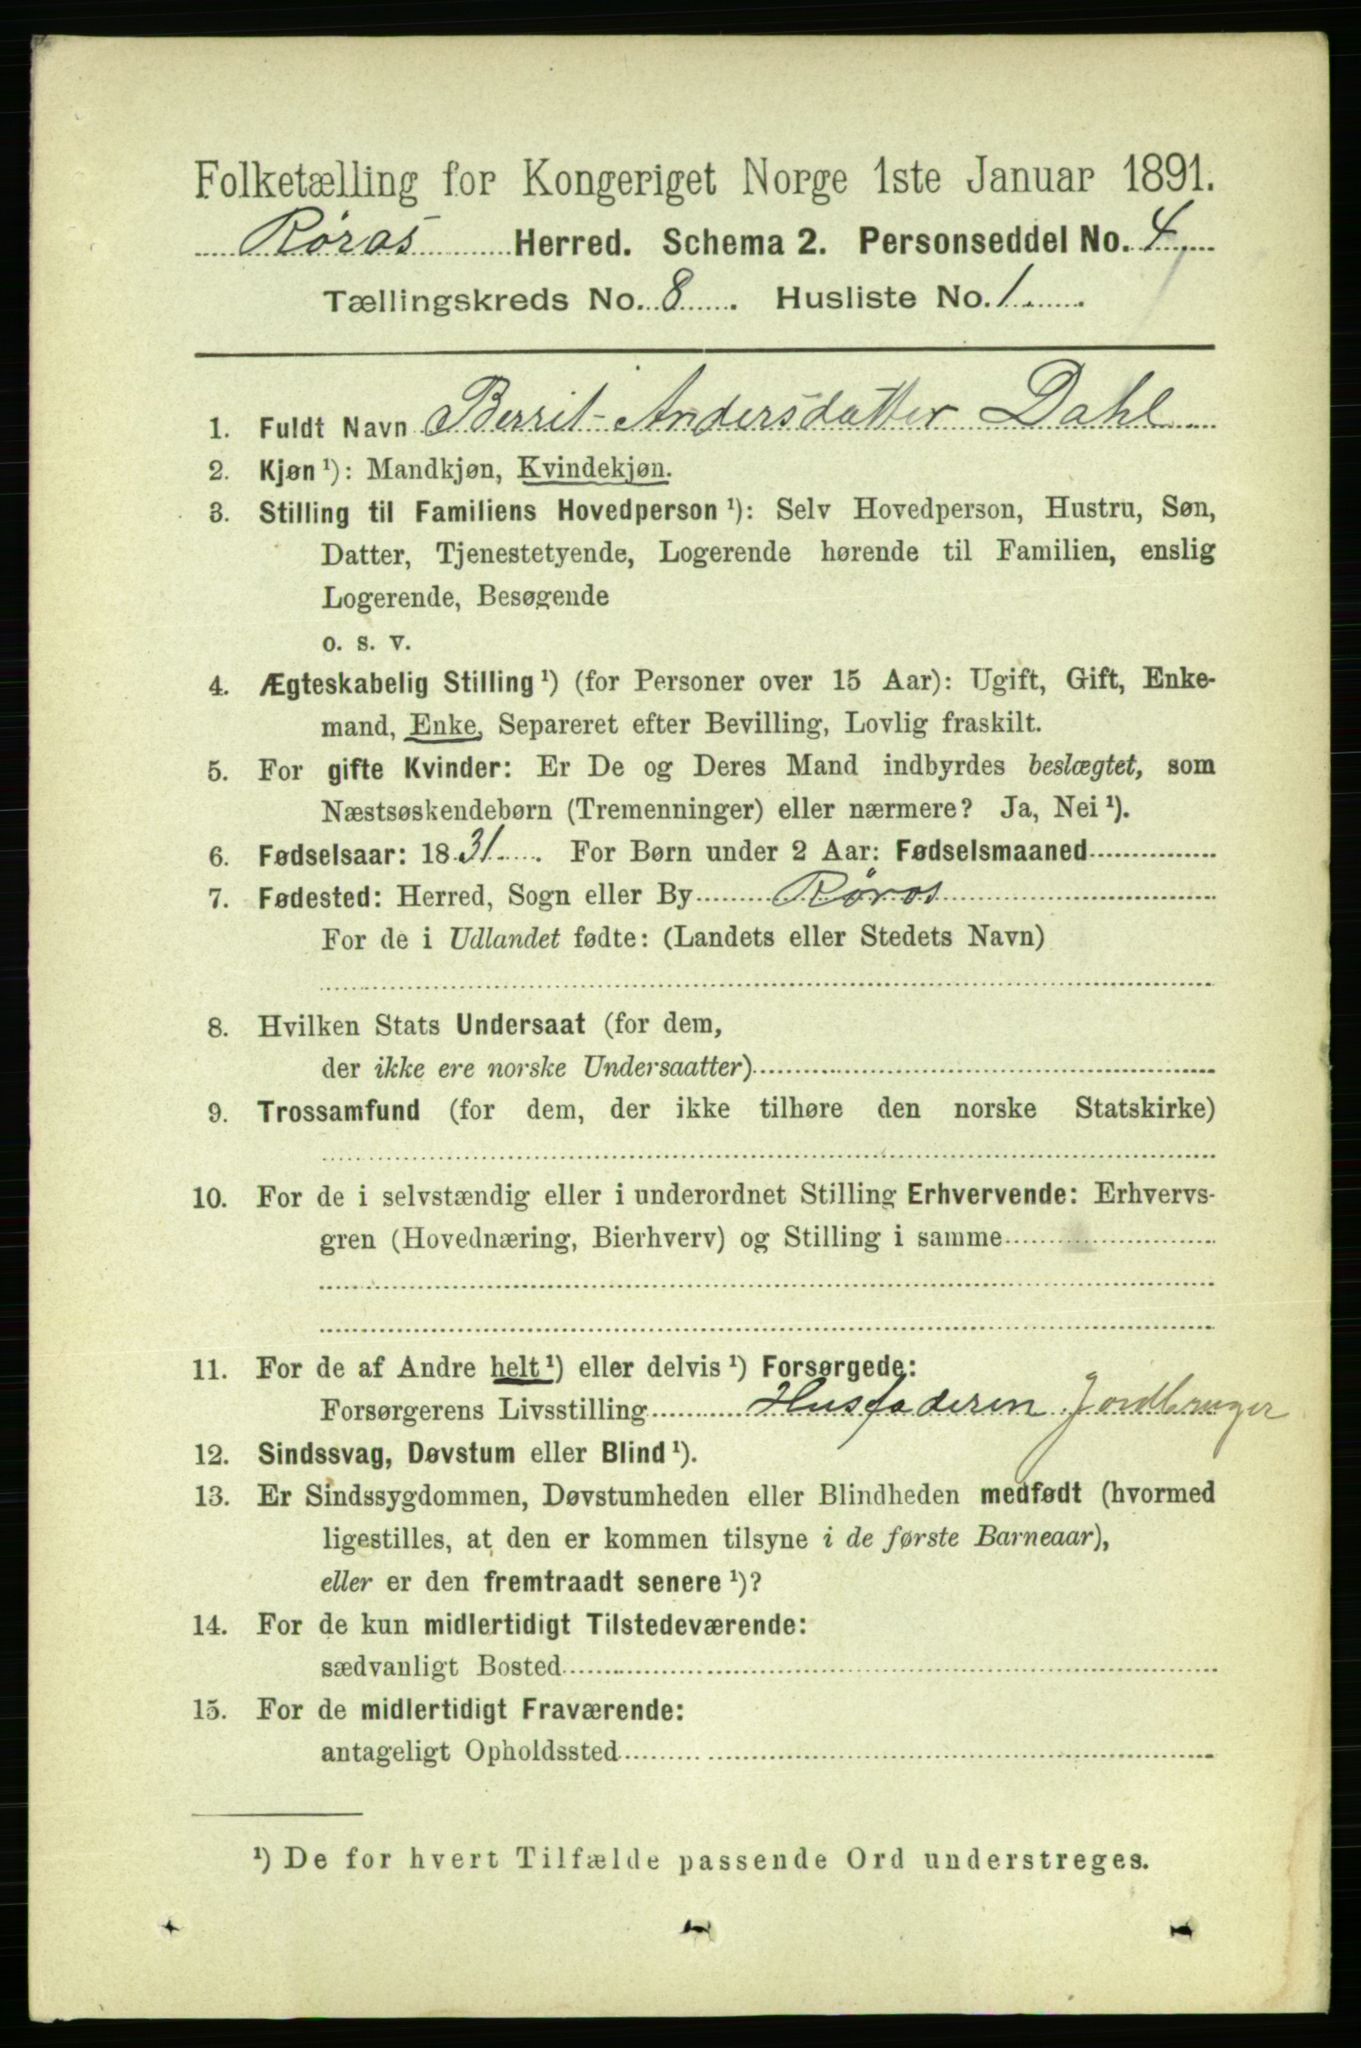 Folketælling for Kongeriget Norge 1ste Januar 1891.
Røros Herred. Schema 2. Personseddel No. 4
Tællingskreds No. 8. Husliste No. 1
1. Fuldt Navn Berrit Andersdatter Dahl
2. Kjøn ¹): Mandkjøn, Kvindekjøn.
3. Stilling til Familiens Hovedperson ¹): Selv Hovedperson, Hustru, Søn,
Datter, Tjenestetyende, Logerende hørende til Familien, enslig
Logerende, Besøgende
o. s. v.
4. Ægteskabelig Stilling ¹) (for Personer over 15 Aar): Ugift, Gift, Enke-
mand, Enke, Separeret efter Bevilling, Lovlig fraskilt.
5. For gifte Kvinder: Er De og Deres Mand indbyrdes beslægtet, som
Næstsøskendebørn (Tremenninger) eller nærmere? Ja, Nei ¹).
6. Fødselsaar: 1831. For Børn under 2 Aar: Fødselsmaaned
7. Fødested: Herred, Sogn eller By Røros
For de i Udlandet fødte: (Landets eller Stedets Navn)
8. Hvilken Stats Undersaat (for dem,
der ikke ere norske Undersaatter)
9. Trossamfund (for dem, der ikke tilhøre den norske Statskirke)
10. For de i selvstændig eller i underordnet Stilling Erhvervende: Erhvervs-
gren (Hovednæring, Bierhverv) og Stilling i samme
11. For de af Andre helt ¹) eller delvis ¹) Forsørgede:
Forsørgerens Livsstilling Husfaderen Jordbruger
12. Sindssvag, Døvstum eller Blind ¹).
13. Er Sindssygdommen, Døvstumheden eller Blindheden medfødt (hvormed
ligestilles, at den er kommen tilsyne i de første Barneaar),
eller er den fremtraadt senere ¹)?
14. For de kun midlertidigt Tilstedeværende:
sædvanligt Bosted
15. For de midlertidigt Fraværende:
antageligt Opholdssted
¹) De for hvert Tilfælde passende Ord understreges.